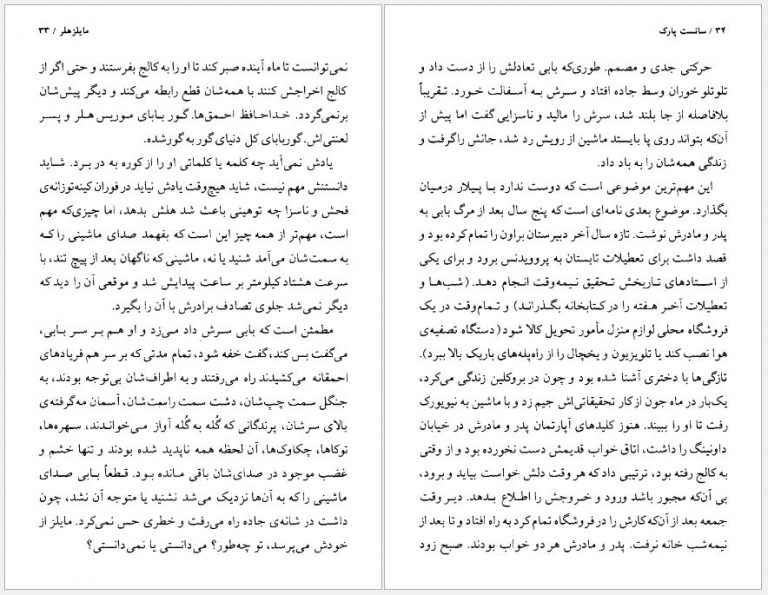 ۳۴ / سانست پارک
حرکتی جدی و مصمم. طوری‌که بابی تعادلش را از دست داد و
تلوتلو خوران وسط جاده افتاد و سرش به آسفالت خورد. تقریباً
بلافاصله از جا بلند شد، سرش را مالید و ناسزایی گفت اما پیش از
آن‌که بتواند روی پا بایستد ماشین از رویش رد شد، جانش را گرفت و
زندگی همه‌شان را به باد داد.
این مهم‌ترین موضوعی است که دوست ندارد با پیلار درمیان
بگذارد. موضوع بعدی نامه‌ای است که پنج سال بعد از مرگ بابی به
پدر و مادرش نوشت. تازه سال آخر دبیرستان براون را تمام کرده بود و
قصد داشت برای تعطیلات تابستان به پروویدنس برود و برای یکی
از استادهای تاریخش تحقیق نیمه‌وقت انجام دهد. (شب‌ها و
تعطیلات آخر هفته را در کتابخانه بگذراند) و تمام‌وقت در یک
فروشگاه محلی لوازم منزل مأمور تحویل کالا شود (دستگاه تصفیه‌ی
هوا نصب کند یا تلویزیون و یخچال را از راه‌پله‌های باریک بالا ببرد).
تازگی‌ها با دختری آشنا شده بود و چون در بروکلین زندگی می‌کرد،
یک‌بار در ماه جون از کار تحقیقاتی‌اش جیم زد و با ماشین به نیویورک
رفت تا او را ببیند. هنوز کلیدهای آپارتمان پدر و مادرش در خیابان
داونینگ را داشت، اتاق خواب قدیمش دست نخورده بود و از وقتی
به کالج رفته بود، ترتیبی داد که هر وقت دلش خواست بیاید و برود،
بی آن‌که مجبور باشد ورود و خروجش را اطلاع بدهد. دیر وقت
جمعه بعد از آن‌که کارش را در فروشگاه تمام کرد به راه افتاد و تا بعد از
نیمه‌شب خانه نرفت. پدر و مادرش هر دو خواب بودند. صبح زود
مایلز هلر / ۳۳
نمی‌توانست تا ماه آینده صبر کند تا او را به کالج بفرستند و حتی اگر از
کالج اخراجش کنند با همه‌شان قطع رابطه می‌کند و دیگر پیش‌شان
برنمی‌گردد. خداحافظ احمق‌ها. گور بابای موریس هلر و پسر
لعنتی‌اش. گوربابای کل دنیای گور به گورشده.
یادش نمی‌آید چه کلمه یا کلماتی او را از کوره به در برد. شاید
دانستنش مهم نیست، شاید هیچ‌وقت یادش نیاید در فوران کینه‌توزانه‌ی
فحش و ناسزا چه توهینی باعث شد هلش بدهد، اما چیزی‌که مهم
است، مهم‌تر از همه چیز این است که بفهمد صدای ماشینی را که
به سمت‌شان می‌آمد شنید یا نه، ماشینی که ناگهان بعد از پیچ تند، با
سرعت هشتاد کیلومتر بر ساعت پیدایش شد و موقعی آن را دید که
دیگر نمی‌شد جلوی تصادف برادرش با آن را بگیرد.
مطمئن است که بابی سرش داد می‌زد و او هم بر سر بابی،
می‌گفت بس کند، گفت خفه شود، تمام مدتی که بر سر هم فریادهای
احمقانه می‌کشیدند راه می‌رفتند و به اطراف‌شان بی‌توجه بودند، به
جنگل سمت چپ‌شان، دشت سمت راست‌شان، آسمان مه‌گرفته‌ی
بالای سرشان، پرندگانی که گُله به گُله آواز می‌خواندند، سهره‌ها،
توکاها، چکاوک‌ها، آن لحظه همه ناپدید شده بودند و تنها خشم و
غضب موجود در صدای‌شان باقی مانده بود. قطعاً بابی صدای
ماشینی را که به آن‌ها نزدیک می‌شد نشنید یا متوجه آن نشد، چون
داشت در شانه‌ی جاده راه می‌رفت و خطری حس نمی‌کرد. مایلز از
خودش می‌پرسد، تو چه‌طور؟ می‌دانستی یا نمی‌دانستی؟